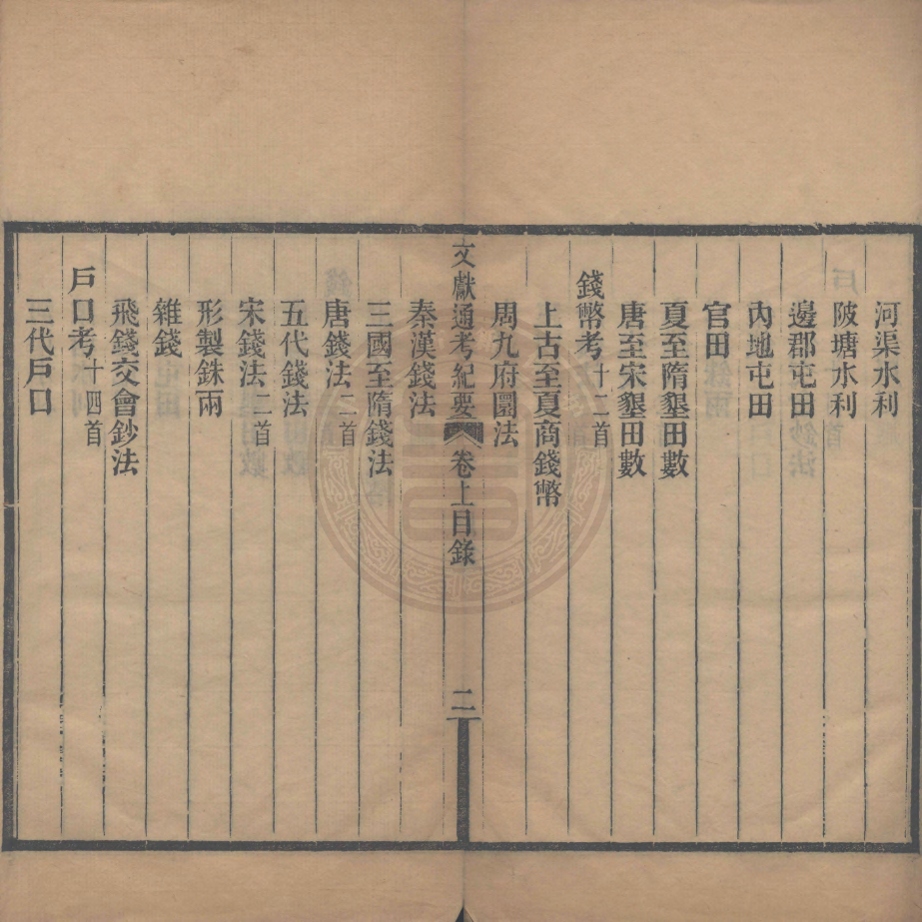 河渠水利
陂塘水利
邊郡屯田
內地屯田
官田
夏至隋墾田數
唐至宋墾田數
錢幣考十二首
上古至夏商錢幣
周九府圜法
文獻通考紀要 卷上目錄 二
秦漢錢法
三國至隋錢法
唐錢法二首
五代錢法
宋錢法二首
形製銖兩
雜錢
飛錢交會鈔法
戶口考十四首
三代戶口